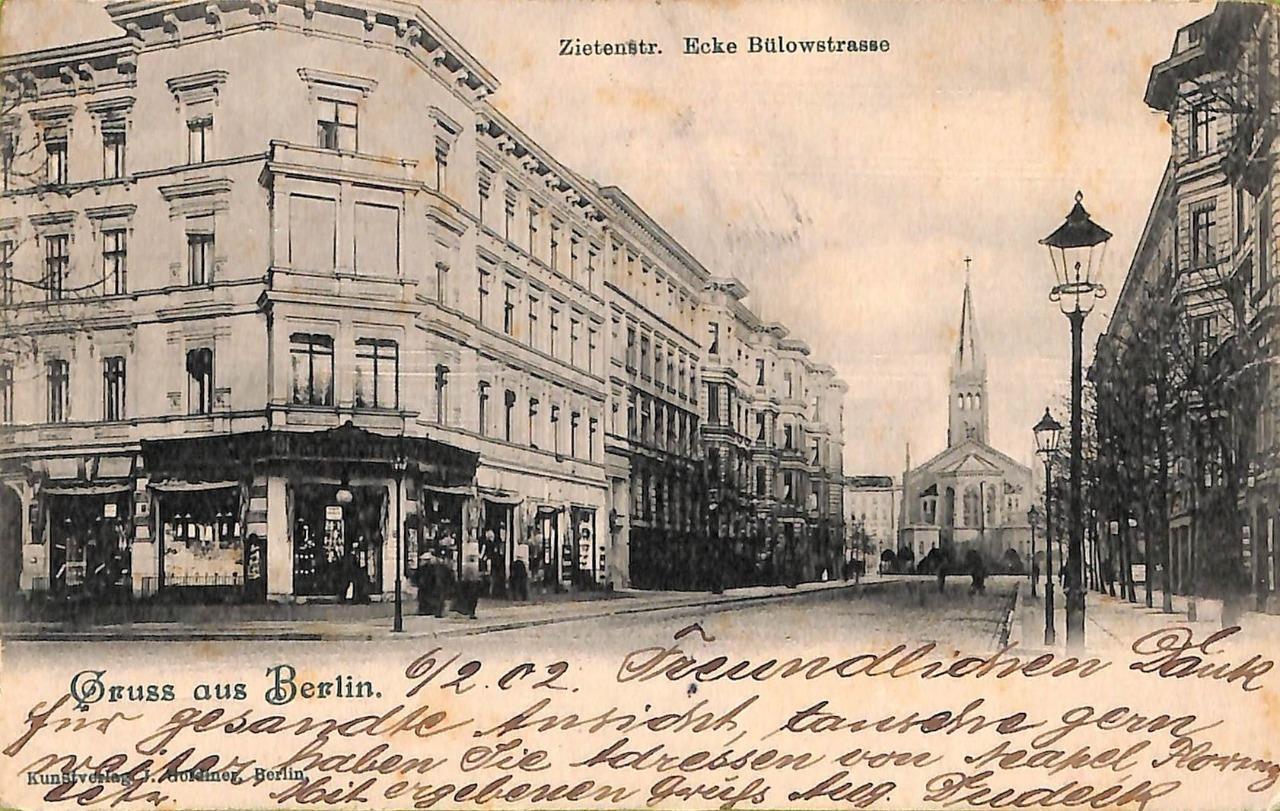 Zietenstr. Ecke Bülowstrasse
Gruss aus Berlin.
6/2.02. Freundlichen Dank
für gesandte Ansicht, tausche gern
weiter, haben Sie Adressen von Neapel, Florenz
Kunstverlag J. Goldiner, Berlin,
etz. Mit ergebenen Gruß Aug.